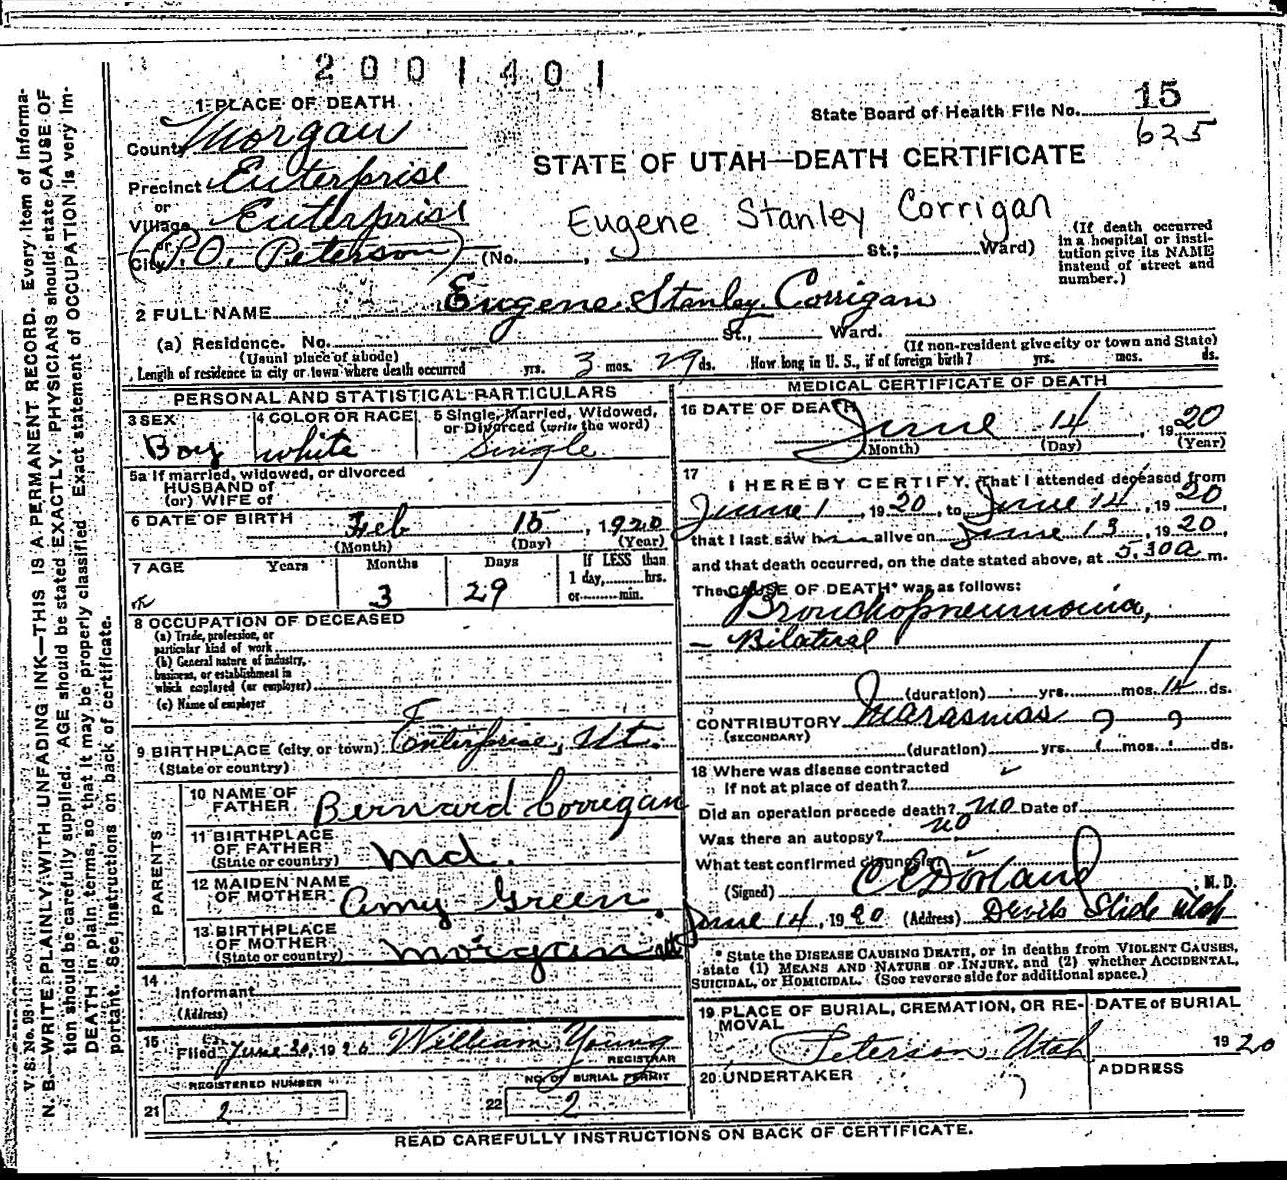 2001401
1 PLACE OF DEATH
State Board of Health File No. 15
625
County Morgan
STATE OF UTAH—DEATH CERTIFICATE
Precinct Enterprise
or
Village Enterprise
Eugene Stanley Corrigan
or
City (P.O. Peterson) (No. , St.; Ward)
(If death occurred in a hospital or insti-
tution give its NAME
instead of street and
number.)
2 FULL NAME Eugene Stanley Corrigan
(a) Residence. No. St., Ward.
(Usual place of abode)
(If non-resident give city or town and State)
Length of residence in city or town where death occurred yrs. 3 mos. 29 ds. How long in U. S., if of foreign birth? yrs. mos. ds.
PERSONAL AND STATISTICAL PARTICULARS
3 SEX
Boy
4 COLOR OR RACE
white
5 Single, Married, Widowed,
or Divorced (write the word)
Single
5a If married, widowed, or divorced
HUSBAND of
(or) WIFE of
6 DATE OF BIRTH Feb 15, 1920
(Month) (Day) (Year)
7 AGE Years Months Days
If LESS than
1 day, hrs.
or min.
3 29
8 OCCUPATION OF DECEASED
(a) Trade, profession, or
particular kind of work
(b) General nature of industry,
business, or establishment in
which employed (or employer)
(c) Name of employer
9 BIRTHPLACE (city or town) Enterprise, Ut.
(State or country)
PARENTS
10 NAME OF
FATHER Bernard Corrigan
11 BIRTHPLACE
OF FATHER Md.
(State or country)
12 MAIDEN NAME
OF MOTHER Amy Green
13 BIRTHPLACE
OF MOTHER Morgan
(State or country)
14
Informant
(Address)
15
Filed June 30, 1920 William Young
REGISTRAR
REGISTERED NUMBER
21 2
NO. OF BURIAL PERMIT
22 2
MEDICAL CERTIFICATE OF DEATH
16 DATE OF DEATH
June 14, 1920
(Month) (Day) (Year)
17
I HEREBY CERTIFY, That I attended deceased from
June 1, 1920, to June 14, 1920,
that I last saw him alive on June 13, 1920,
and that death occurred, on the date stated above, at 5.30a m.
The CAUSE OF DEATH* was as follows:
Bronchopneumonia,
— Bilateral
(duration) yrs. mos. 14 ds.
CONTRIBUTORY Marasmas
(SECONDARY)
(duration) yrs. ? mos. ? ds.
18 Where was disease contracted
if not at place of death?
Did an operation precede death? no Date of
Was there an autopsy? no
What test confirmed diagnosis?
(Signed) C E Dorland, M. D.
June 14, 1920 (Address) Devils Slide Utah
* State the DISEASE CAUSING DEATH, or in deaths from VIOLENT CAUSES,
state (1) MEANS AND NATURE OF INJURY, and (2) whether ACCIDENTAL,
SUICIDAL, or HOMICIDAL. (See reverse side for additional space.)
19 PLACE OF BURIAL, CREMATION, OR RE-
MOVAL
Peterson, Utah
DATE of BURIAL
1920
20 UNDERTAKER
ADDRESS
READ CAREFULLY INSTRUCTIONS ON BACK OF CERTIFICATE.
N. B.—WRITE PLAINLY, WITH UNFADING INK—THIS IS A PERMANENT RECORD. Every item of Informa-
tion should be carefully supplied. AGE should be stated EXACTLY. PHYSICIANS should state CAUSE OF
DEATH in plain terms, so that it may be properly classified. Exact statement of OCCUPATION is very im-
portant. See instructions on back of certificate.